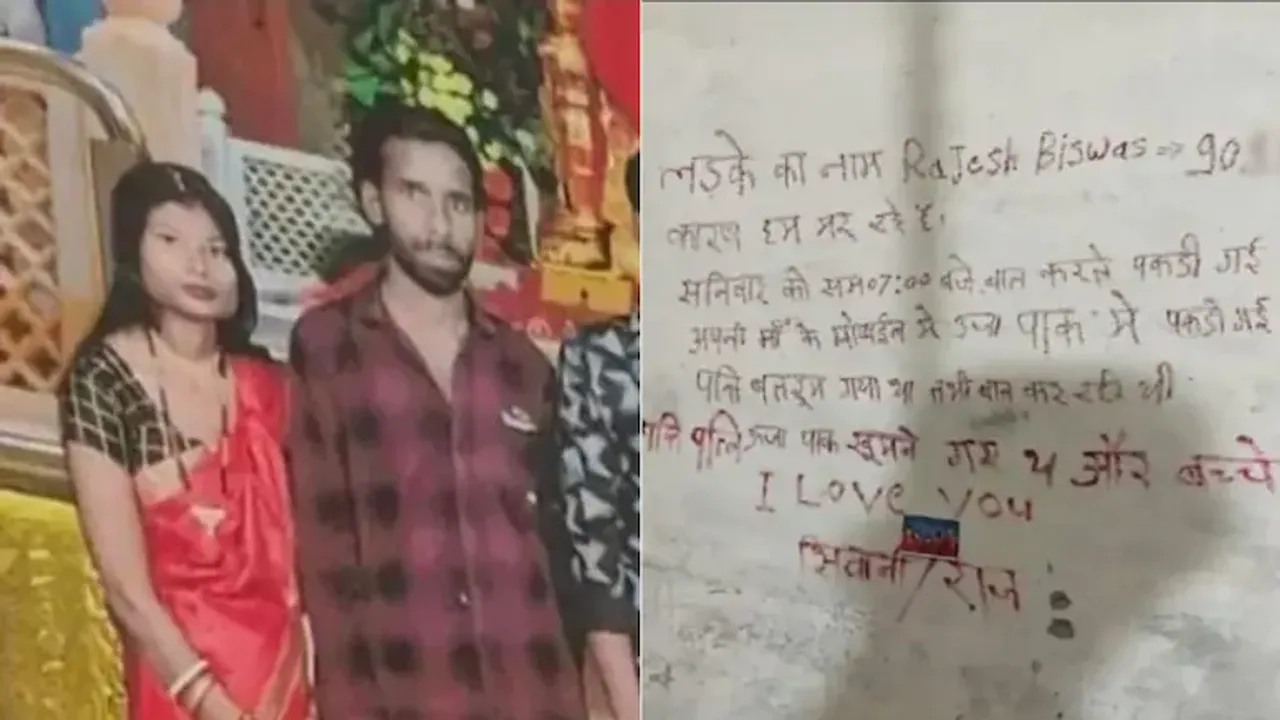 लड़के का नाम RaJesh Biswas => 90
कारण हम मर रहे है।
सनिवार को सम07:00 बजे बात करते पकडी गई
अपनी माँ के मोबाईल से उर्जा पाक मे पकडी गई
पति बतरूम गया था तभी बात कर रही थी
पति पत्नि उर्जा पाक घूमने गए थे और बच्चे
I Love You
सिवानी/राज